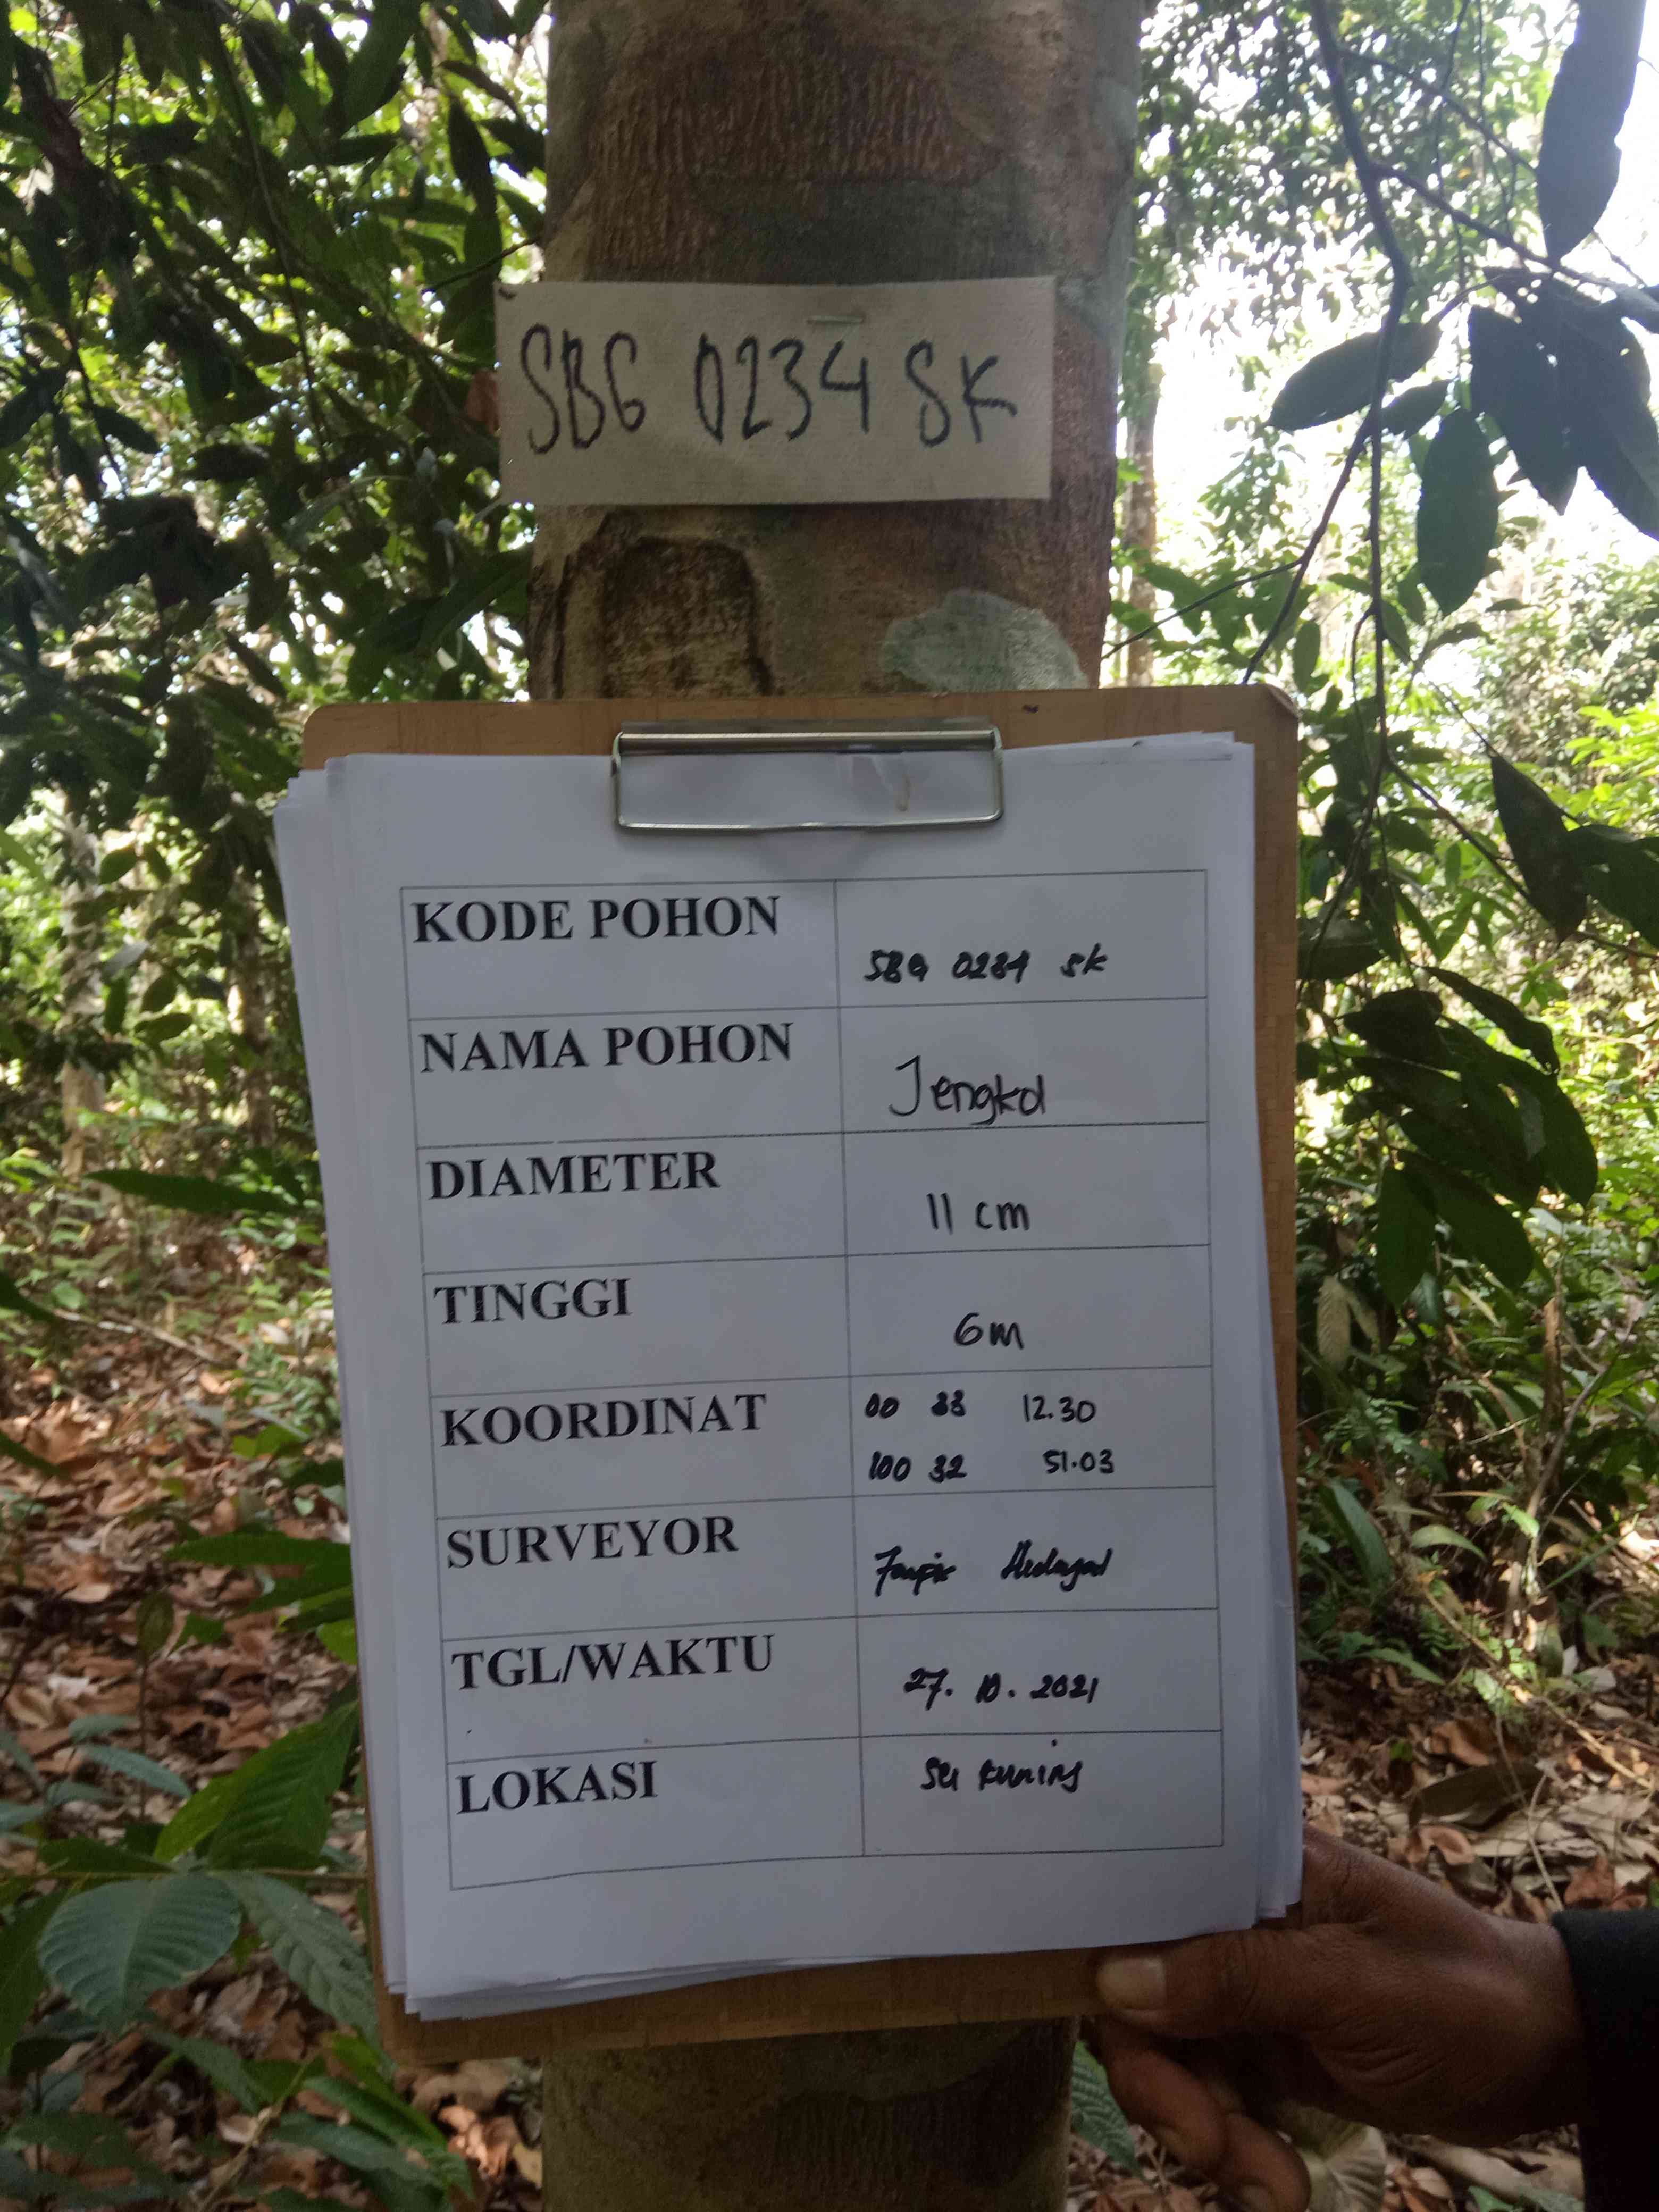 SBG 0234 SK
KODE POHON
SBG 0234 SK
NAMA POHON
Jengkol
DIAMETER
11 cm
TINGGI
6m
KOORDINAT
00 33 12.30
100 32 51.03
SURVEYOR
TGL/WAKTU
27. 10. 2021
LOKASI
Sei Kuning